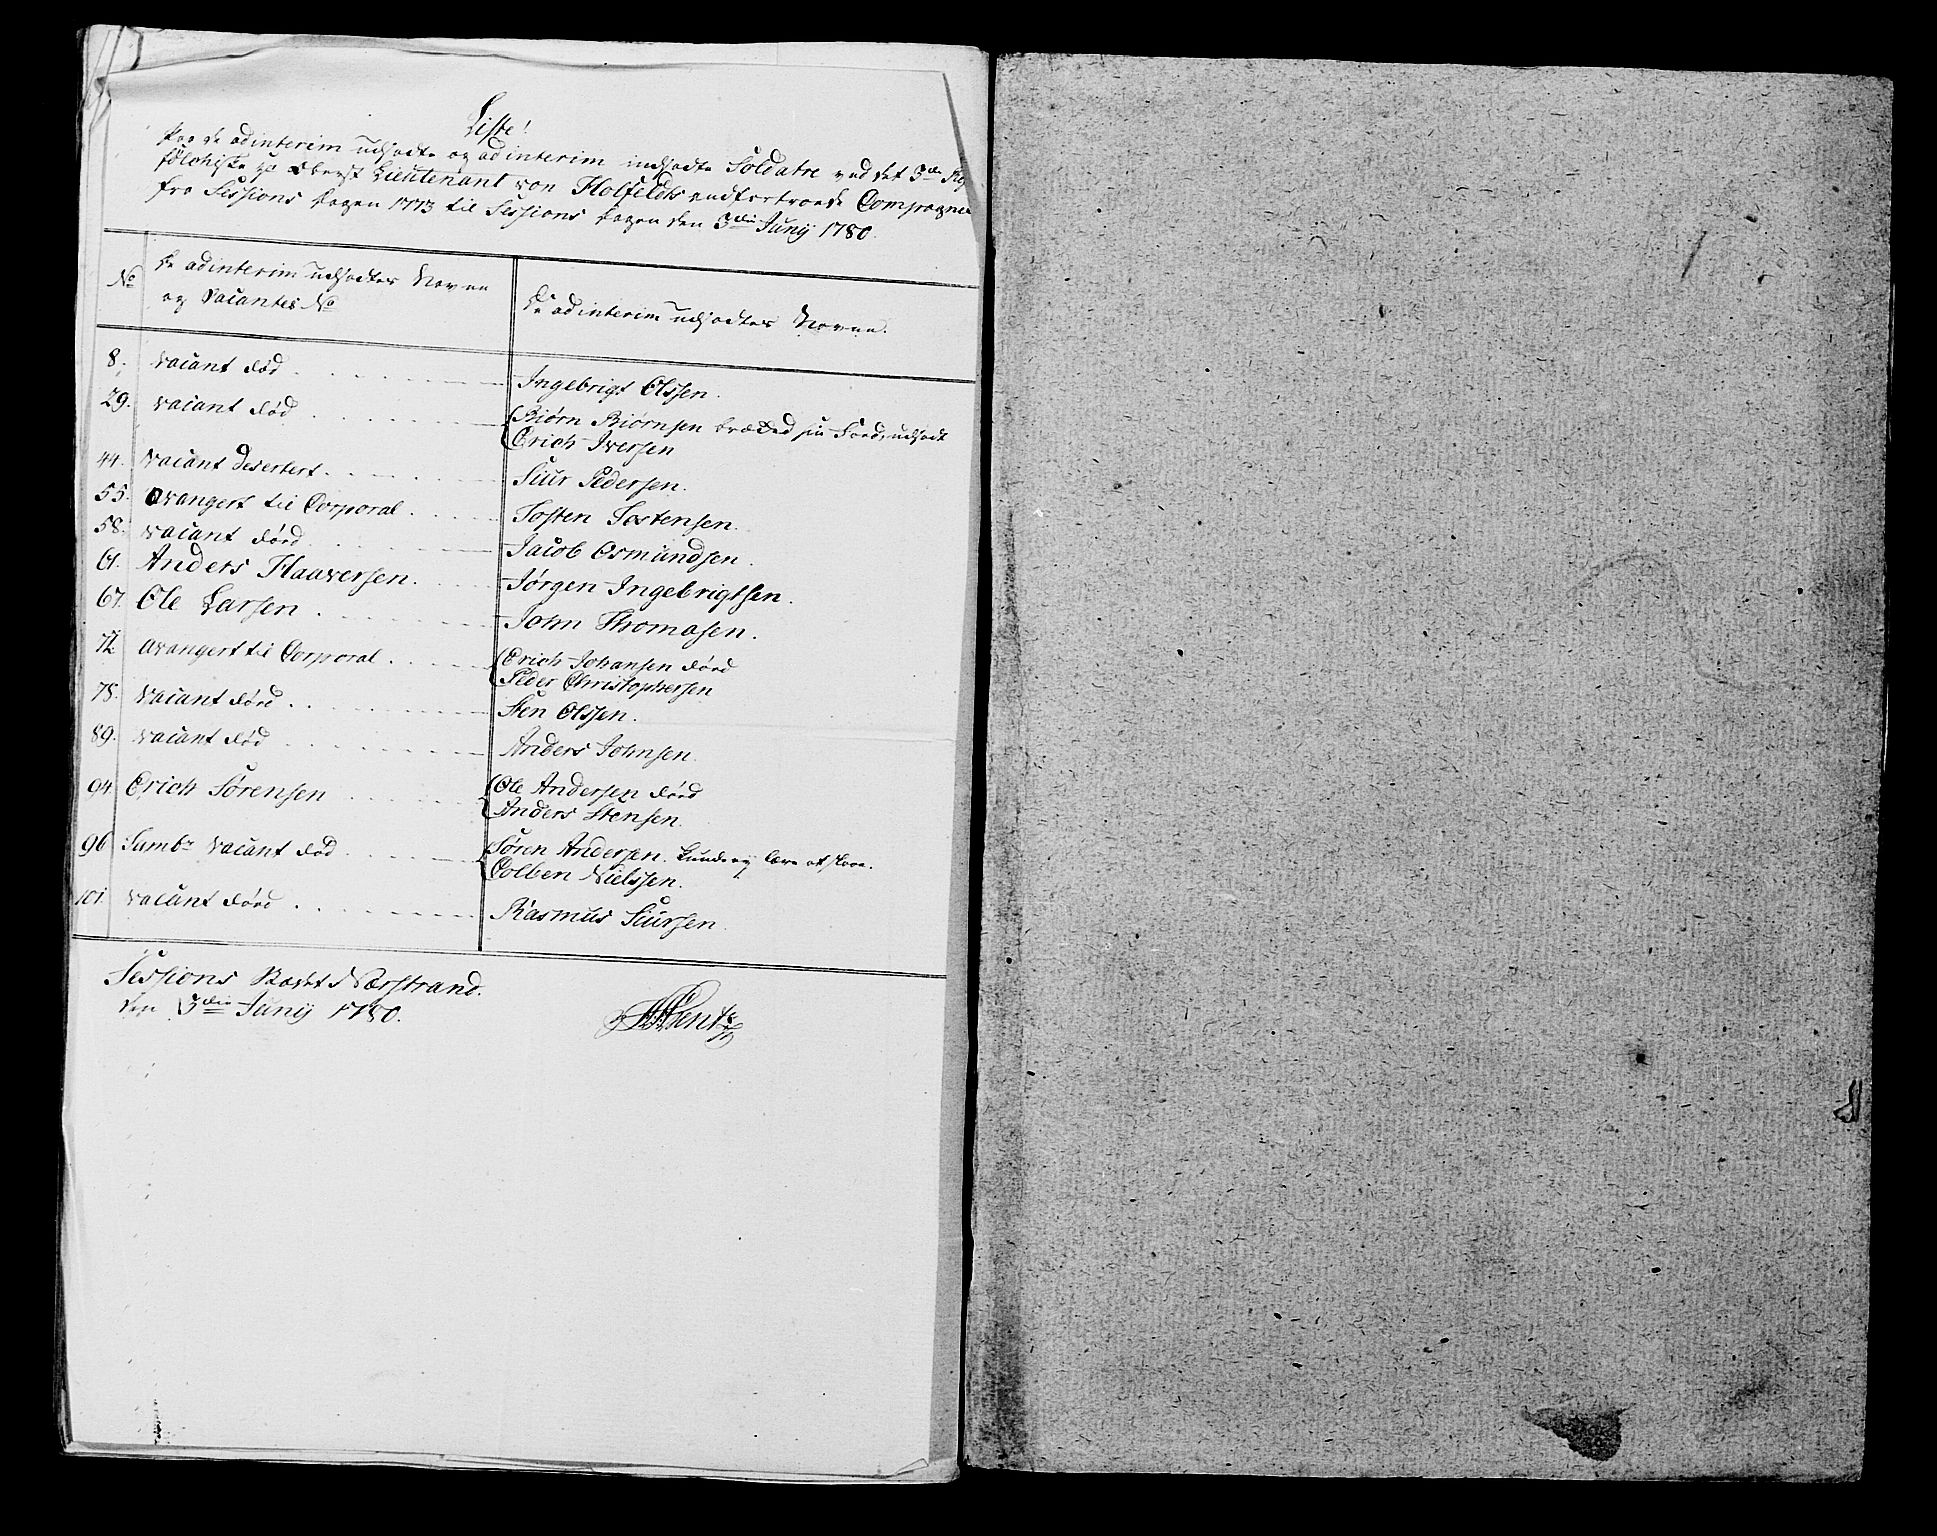 Liste!
Paa de adinterim udsadte og adinterim indsadte Soldatre ved det 3die
Oberst Lieutenant von Holfeldts anfortroede Compagnie
fra Sessions Dagen 1773 til Sessions Dagen den 3die Junij 1780.
No
De adinterim udsadtes Navne
og Vacantes No
De adinterim udsadtes Navne.
8. vacant død Ingebrigt Olssen.
29. vacant død Biørn Biørnsen brækked sin Food, udsadt
Erich Iversen
44. vacant desertert. Siur Pedersen.
55. avangert til Corporal Tosten Tostensen.
58. vacant død Jacob Osmundsen.
61. Anders Haaversen. Jørgen Ingebrigtsen.
67. Ole Larsen John Thomasen.
72. avangert til Corporal Erich Johansen død
Peder Christophersen
78. vacant død Sten Olssen.
89. vacant død Anders Johnsen.
94. Erich Sørensen Ole Andersen død
Anders Stensen.
96 Tambr vacant død Søren Andersen. kunde ej lære at slaae.
Colben Nielssen.
101. vacant død Rasmus Siursen.
Sessions Stædet Nærstrand.
den 3die Junij 1780.